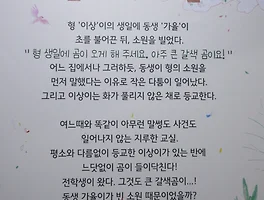 형 '이상'이의 생일에 동생 '가을'이
초를 불어끈 뒤, 소원을 빌었다.
" 형 생일에 곰이 오게 해 주세요. 아주 큰 갈색 곰이요! "
어느 집에서나 그러하듯, 동생이 형의 소원을
먼저 말했다는 이유로 작은 다툼이 일어났다.
그리고 이상이는 화가 풀리지 않은 채로 등교한다.
여느때와 똑같이 아무런 말썽도 사건도
일어나지 않는 지루한 교실.
평소와 다름없이 등교한 이상이가 있는 반에
느닷없이 곰이 들이닥친다!
전학생이 왔다. 그것도 큰 갈색곰이...!
동생 가을이가 빈 소원 때문이었을까?